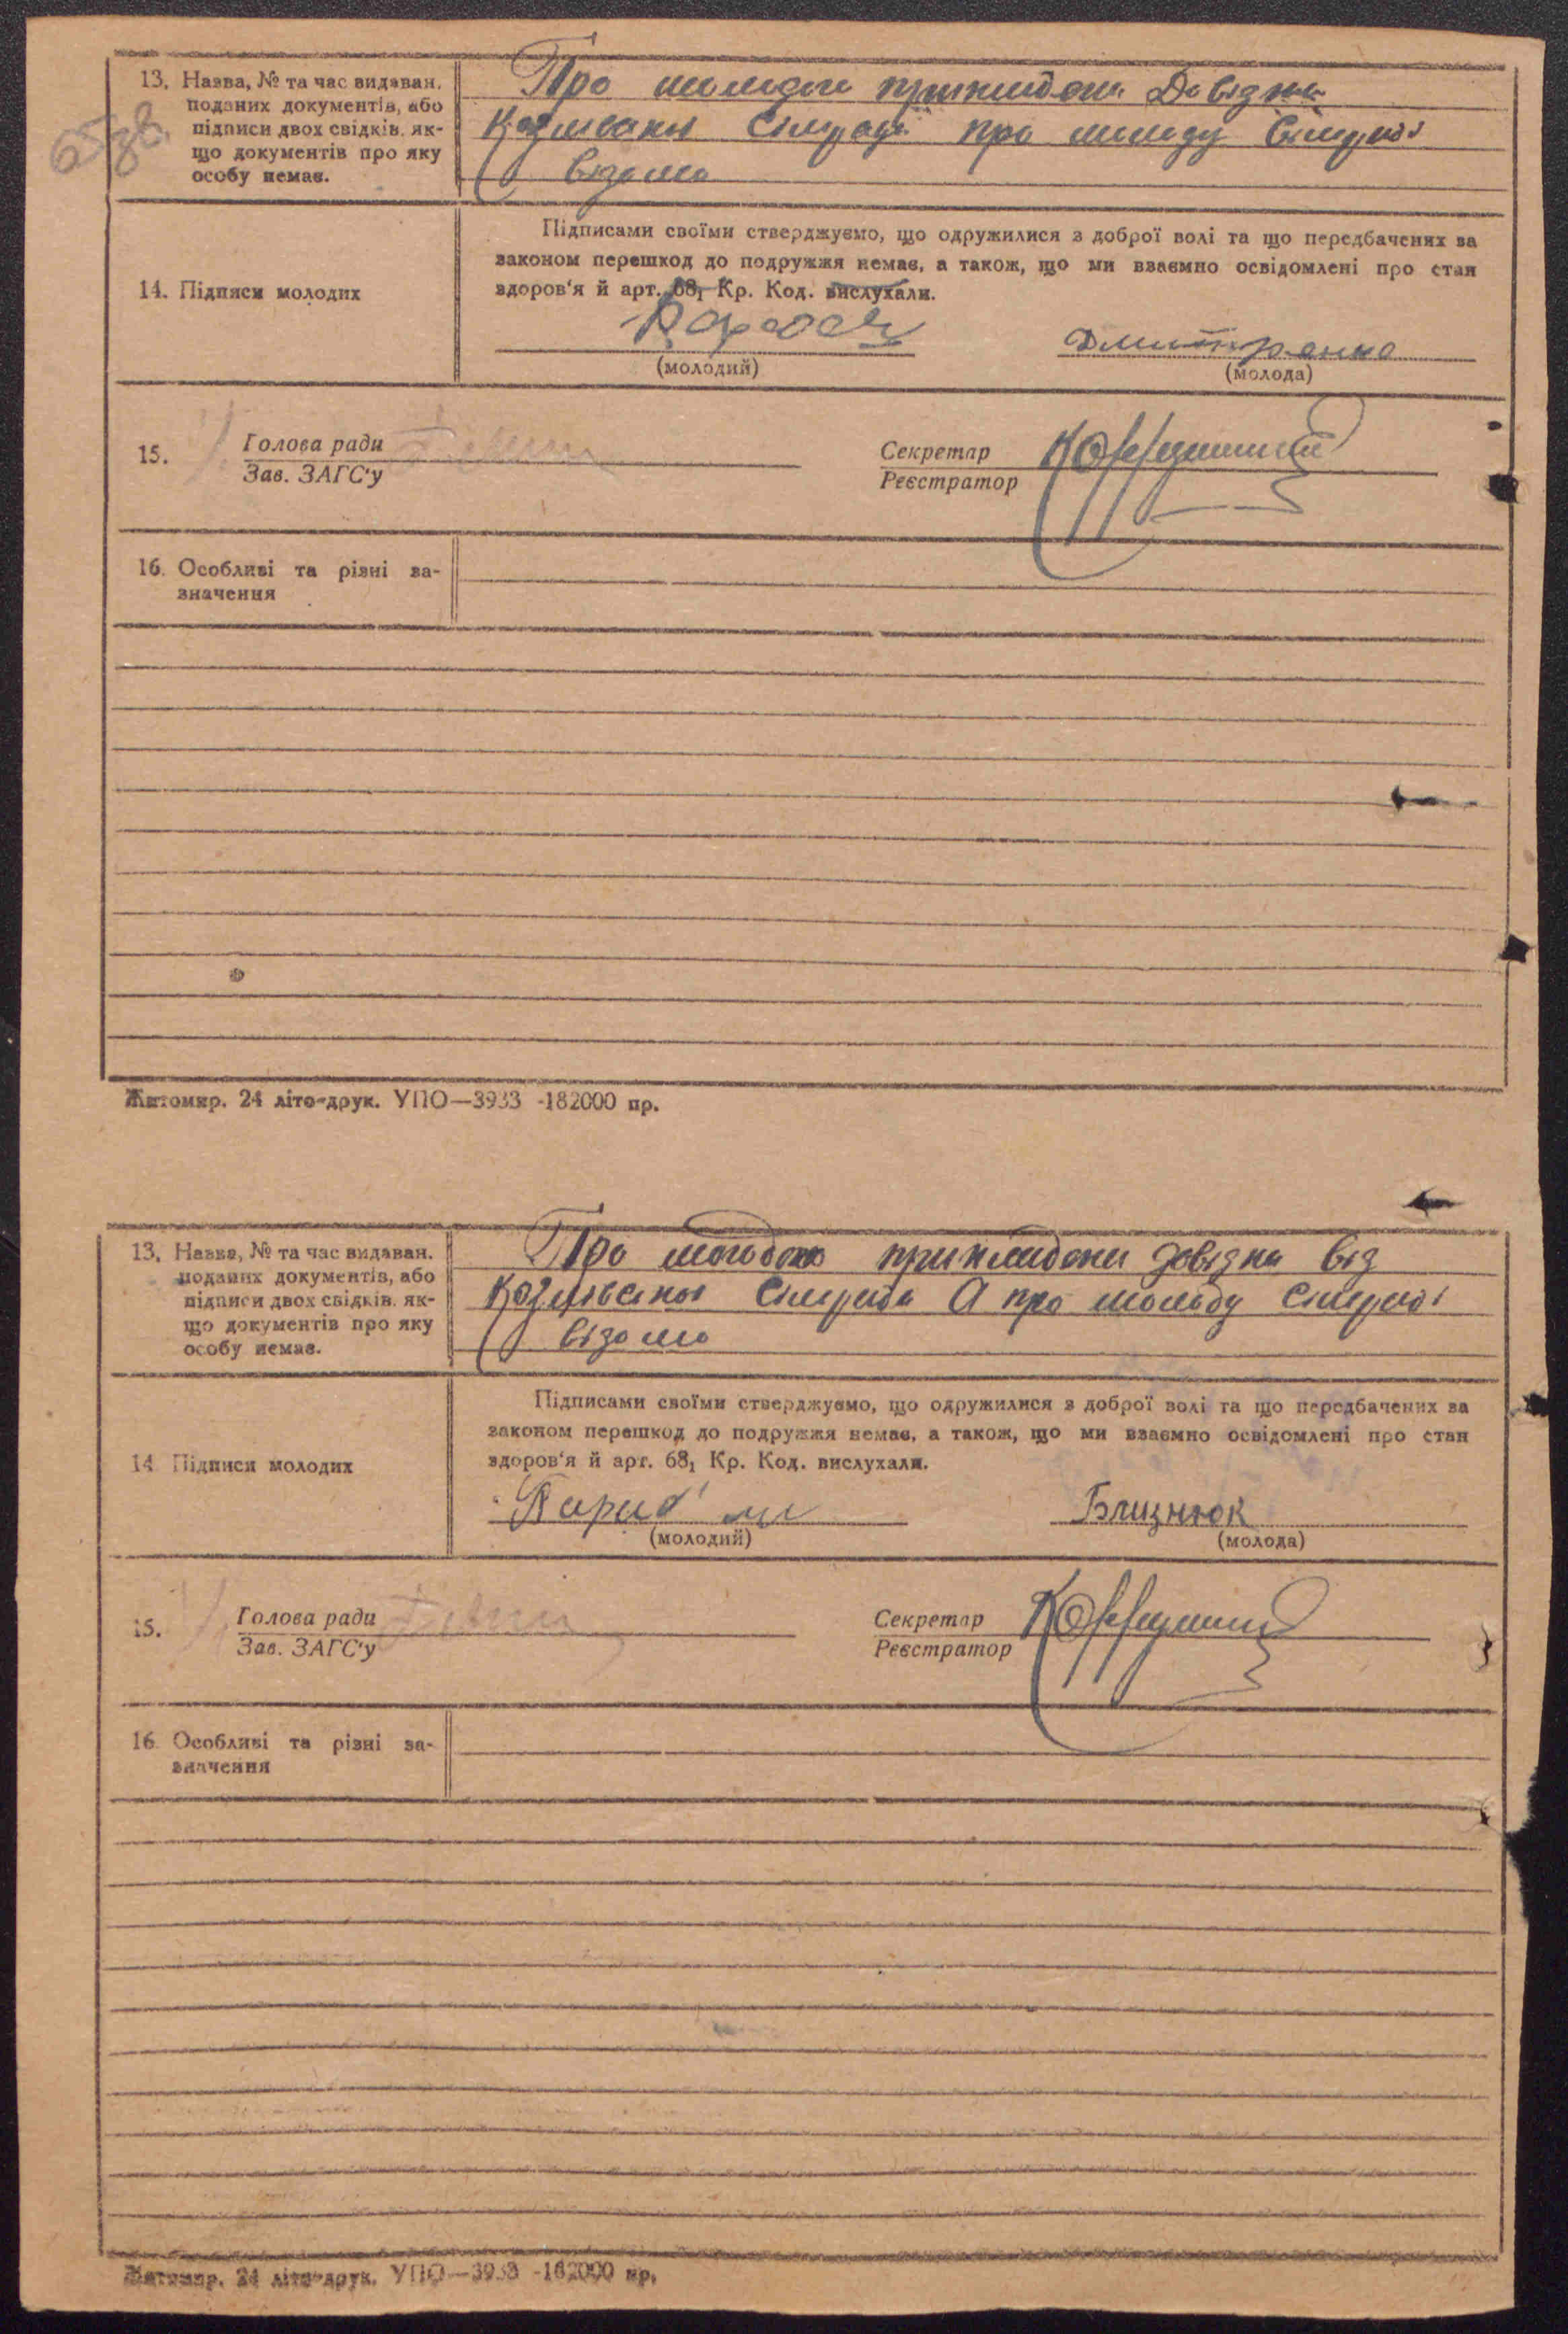 65зв.
13. Назва, № та час видаван.
поданих документів, або
підписи двох свідків, як-
що документів про яку
особу немає.
Про молодого прикладена Довідка
сільради про молоду сільраді
відомо
14. Підписи молодих
Підписами своїми стверджуємо, що одружилися з доброї волі та що передбачених за
законом перешкод до подружжя немає, а також, що ми взаємно освідомлені про стан
здоров'я й арт. 68₁ Кр. Код. вислухали.
Дмитренко
(молодий) (молода)
15. Голова ради
Зав. ЗАГС'у
Секретар
Реєстратор
16. Особливі та різні за-
значення
Житомир. 24 літо-друк. УПО—3933 -182000 пр.
13. Назва, № та час видаван.
поданих документів, або
підписи двох свідків, як-
що документів про яку
особу немає.
Про молодого прикладена довідка від
сільради А про молоду сільраді
відомо
14. Підписи молодих
Підписами своїми стверджуємо, що одружилися з доброї волі та що передбачених за
законом перешкод до подружжя немає, а також, що ми взаємно освідомлені про стан
здоров'я й арт. 68₁ Кр. Код. вислухали.
Близнюк
(молодий) (молода)
15. Голова ради
Зав. ЗАГС'у
Секретар
Реєстратор
16. Особливі та різні за-
значення
Житомир. 24 літо-друк. УПО—3933 -182000 пр.